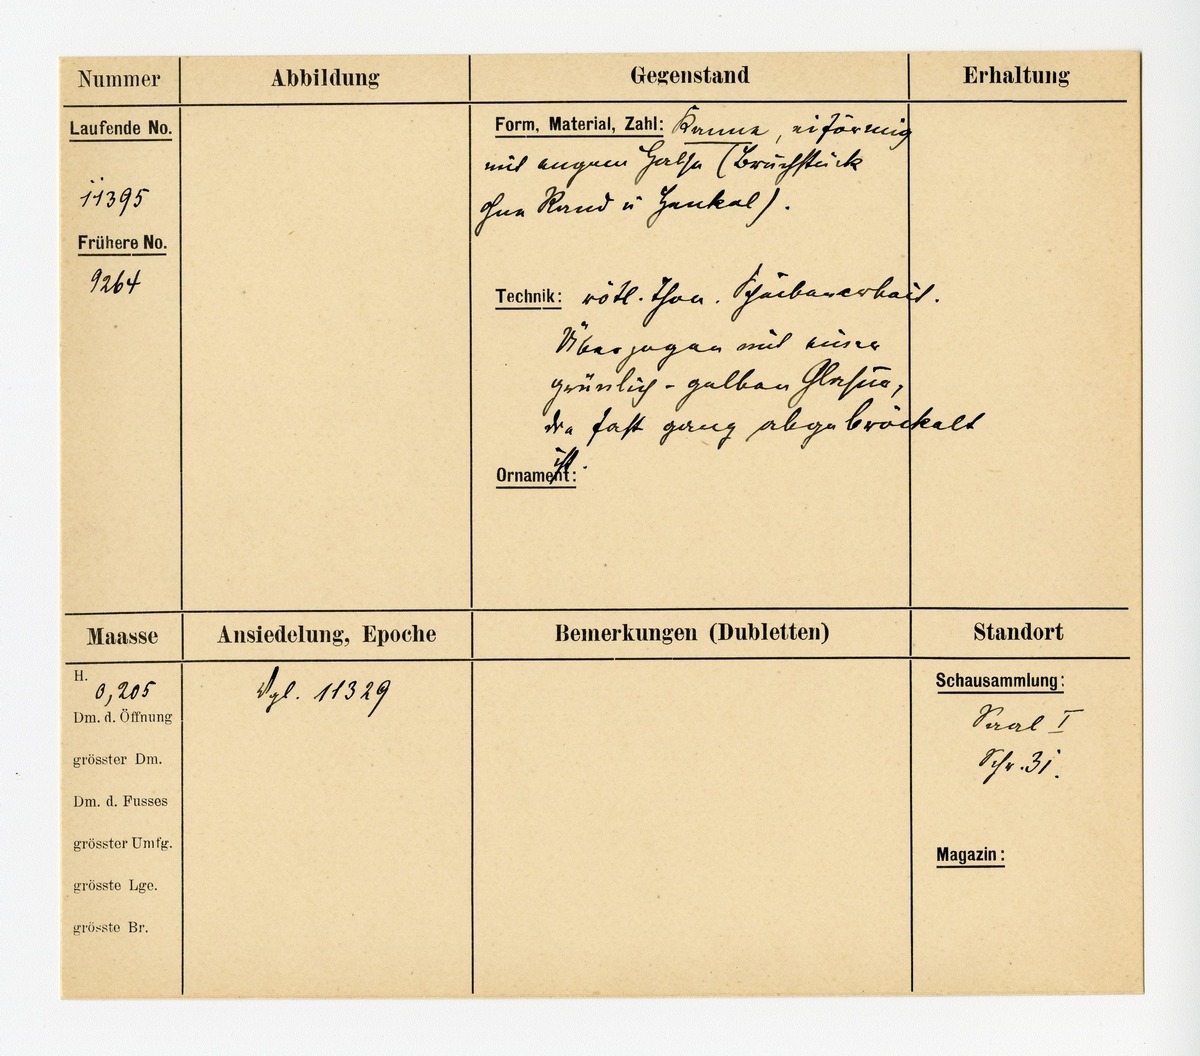 Nummer
Abbildung
Gegenstand
Erhaltung
Laufende No.
11395
Frühere No.
9264
Form, Material, Zahl: Kanne, eiförmig
mit engem Halse (Bruchstück
ohne Rand u Henkel).
Technik: rötl. Thon. Scheibenarbeit.
Überzogen mit einer
grünlich-gelben Glasur,
die fast ganz abgebröckelt
ist.
Ornament:
Maasse
Ansiedelung, Epoche
Bemerkungen (Dubletten)
Standort
H. 0,205
Dm. d. Öffnung
grösster Dm.
Dm. d. Fusses
grösster Umfg.
grösste Lge.
grösste Br.
Vgl. 11329
Schausammlung:
Saal I
Schr. 31.
Magazin: